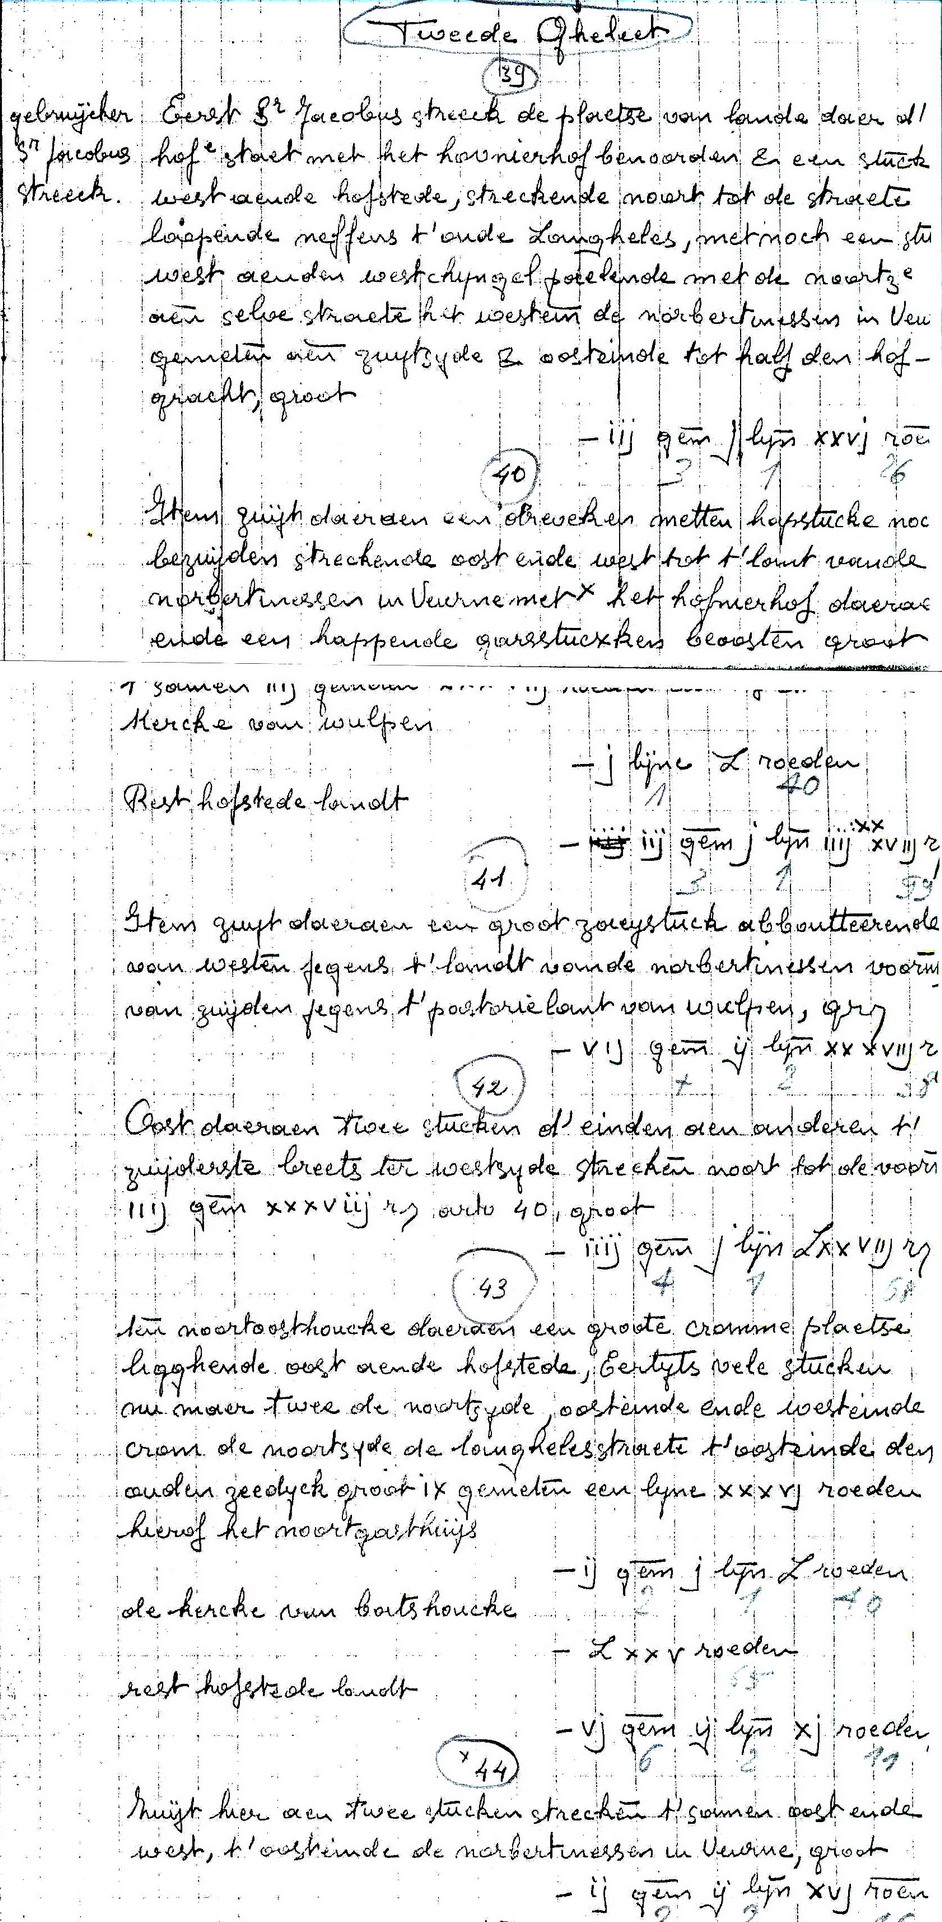 Tweede Gheleet
39
gebruijcker
Sr Jacobus
streeck.
Eerst Sr Jacobus streeck de plaetse van lande daer d'
hofe staet met het hovnierhof benoorden & een stuck
west aende hofstede, streckende noort tot de straete
loopende neffens t'oude Langheles, met noch een stu
west aenden westchyngel paelende met de noortze
aen selve straete het westein de norbertinessen in Veu
gemeten aen zuytzyde & oosteinde tot half den hof-
gracht, groot
- iij gem j lyn xxvj roe
3 1 26
40
Item zuijt daeraen een dreveken metten hopstucke noc
bezuijden streckende oost ende west tot t'lant vande
norbertinessen in Veurne met x het hofnierhof daerae
ende een happende garsstucxken beoosten groot
t'samen iiij gemeten
Kercke van wulpen
- j lijne L roeden
1 40
Rest hofstede landt
- iij gem j lyn iiij xx xviij r
3 1
41
Item zuyt daeraen een groot zaeystuck abboutteerende
van westen jegens t'landt vande norbertinessen voorn
van zuijden jegens t'pastorie lant van wulpen, gr
- vij gem ij lyn xxxviij r
7 2 38
42
Oost daeraen twee stucken d'einden aen anderen t'
zuijderste breets ter westsyde strecken noort tot de voorn
iiij gem xxxviij r arto 40, groot
- iiij gem j lijn Lxxviij r
4 1 68
43
ten noortoosthoucke daeraen een groote cromme plaetse
ligghende oost aende hofstede, Eertyts vele stucken
nu maer twee de noortzyde, oosteinde ende westeinde
crom de noortsyde de langhelesstraete t'oosteinde den
ouden zeedyck groot ix gemeten een lyne xxxvj roeden
hierof het noortgasthuijs
- ij gem j lyn L roeden
2 1 40
de kercke van boitshoucke
- Lxxv roeden
65
rest hofstede landt
- vj gem ij lyn xj roeden
6 2 11
x 44
Zuijt hier aen twee stucken strecken t'samen oost ende
west, t'oosteinde de norbertinessen in Veurne, groot
- ij gem ij lyn xvj roen
2 2 16